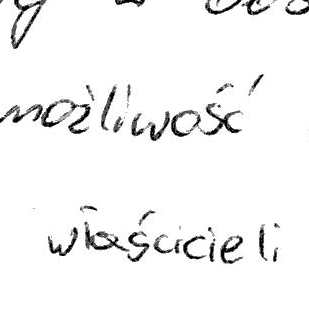 możliwość
właścicieli